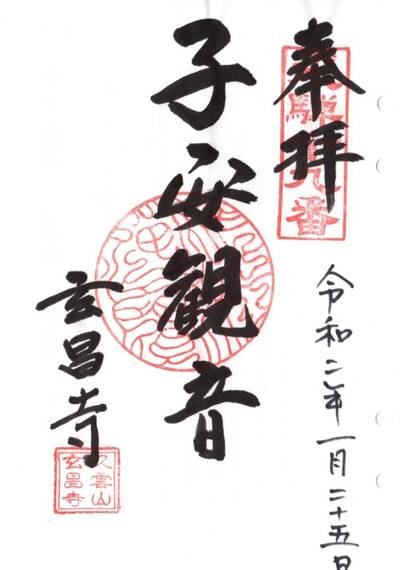 奉拝
令和二年一月二十五日
子安観音
玄昌寺
久雲山
玄昌寺